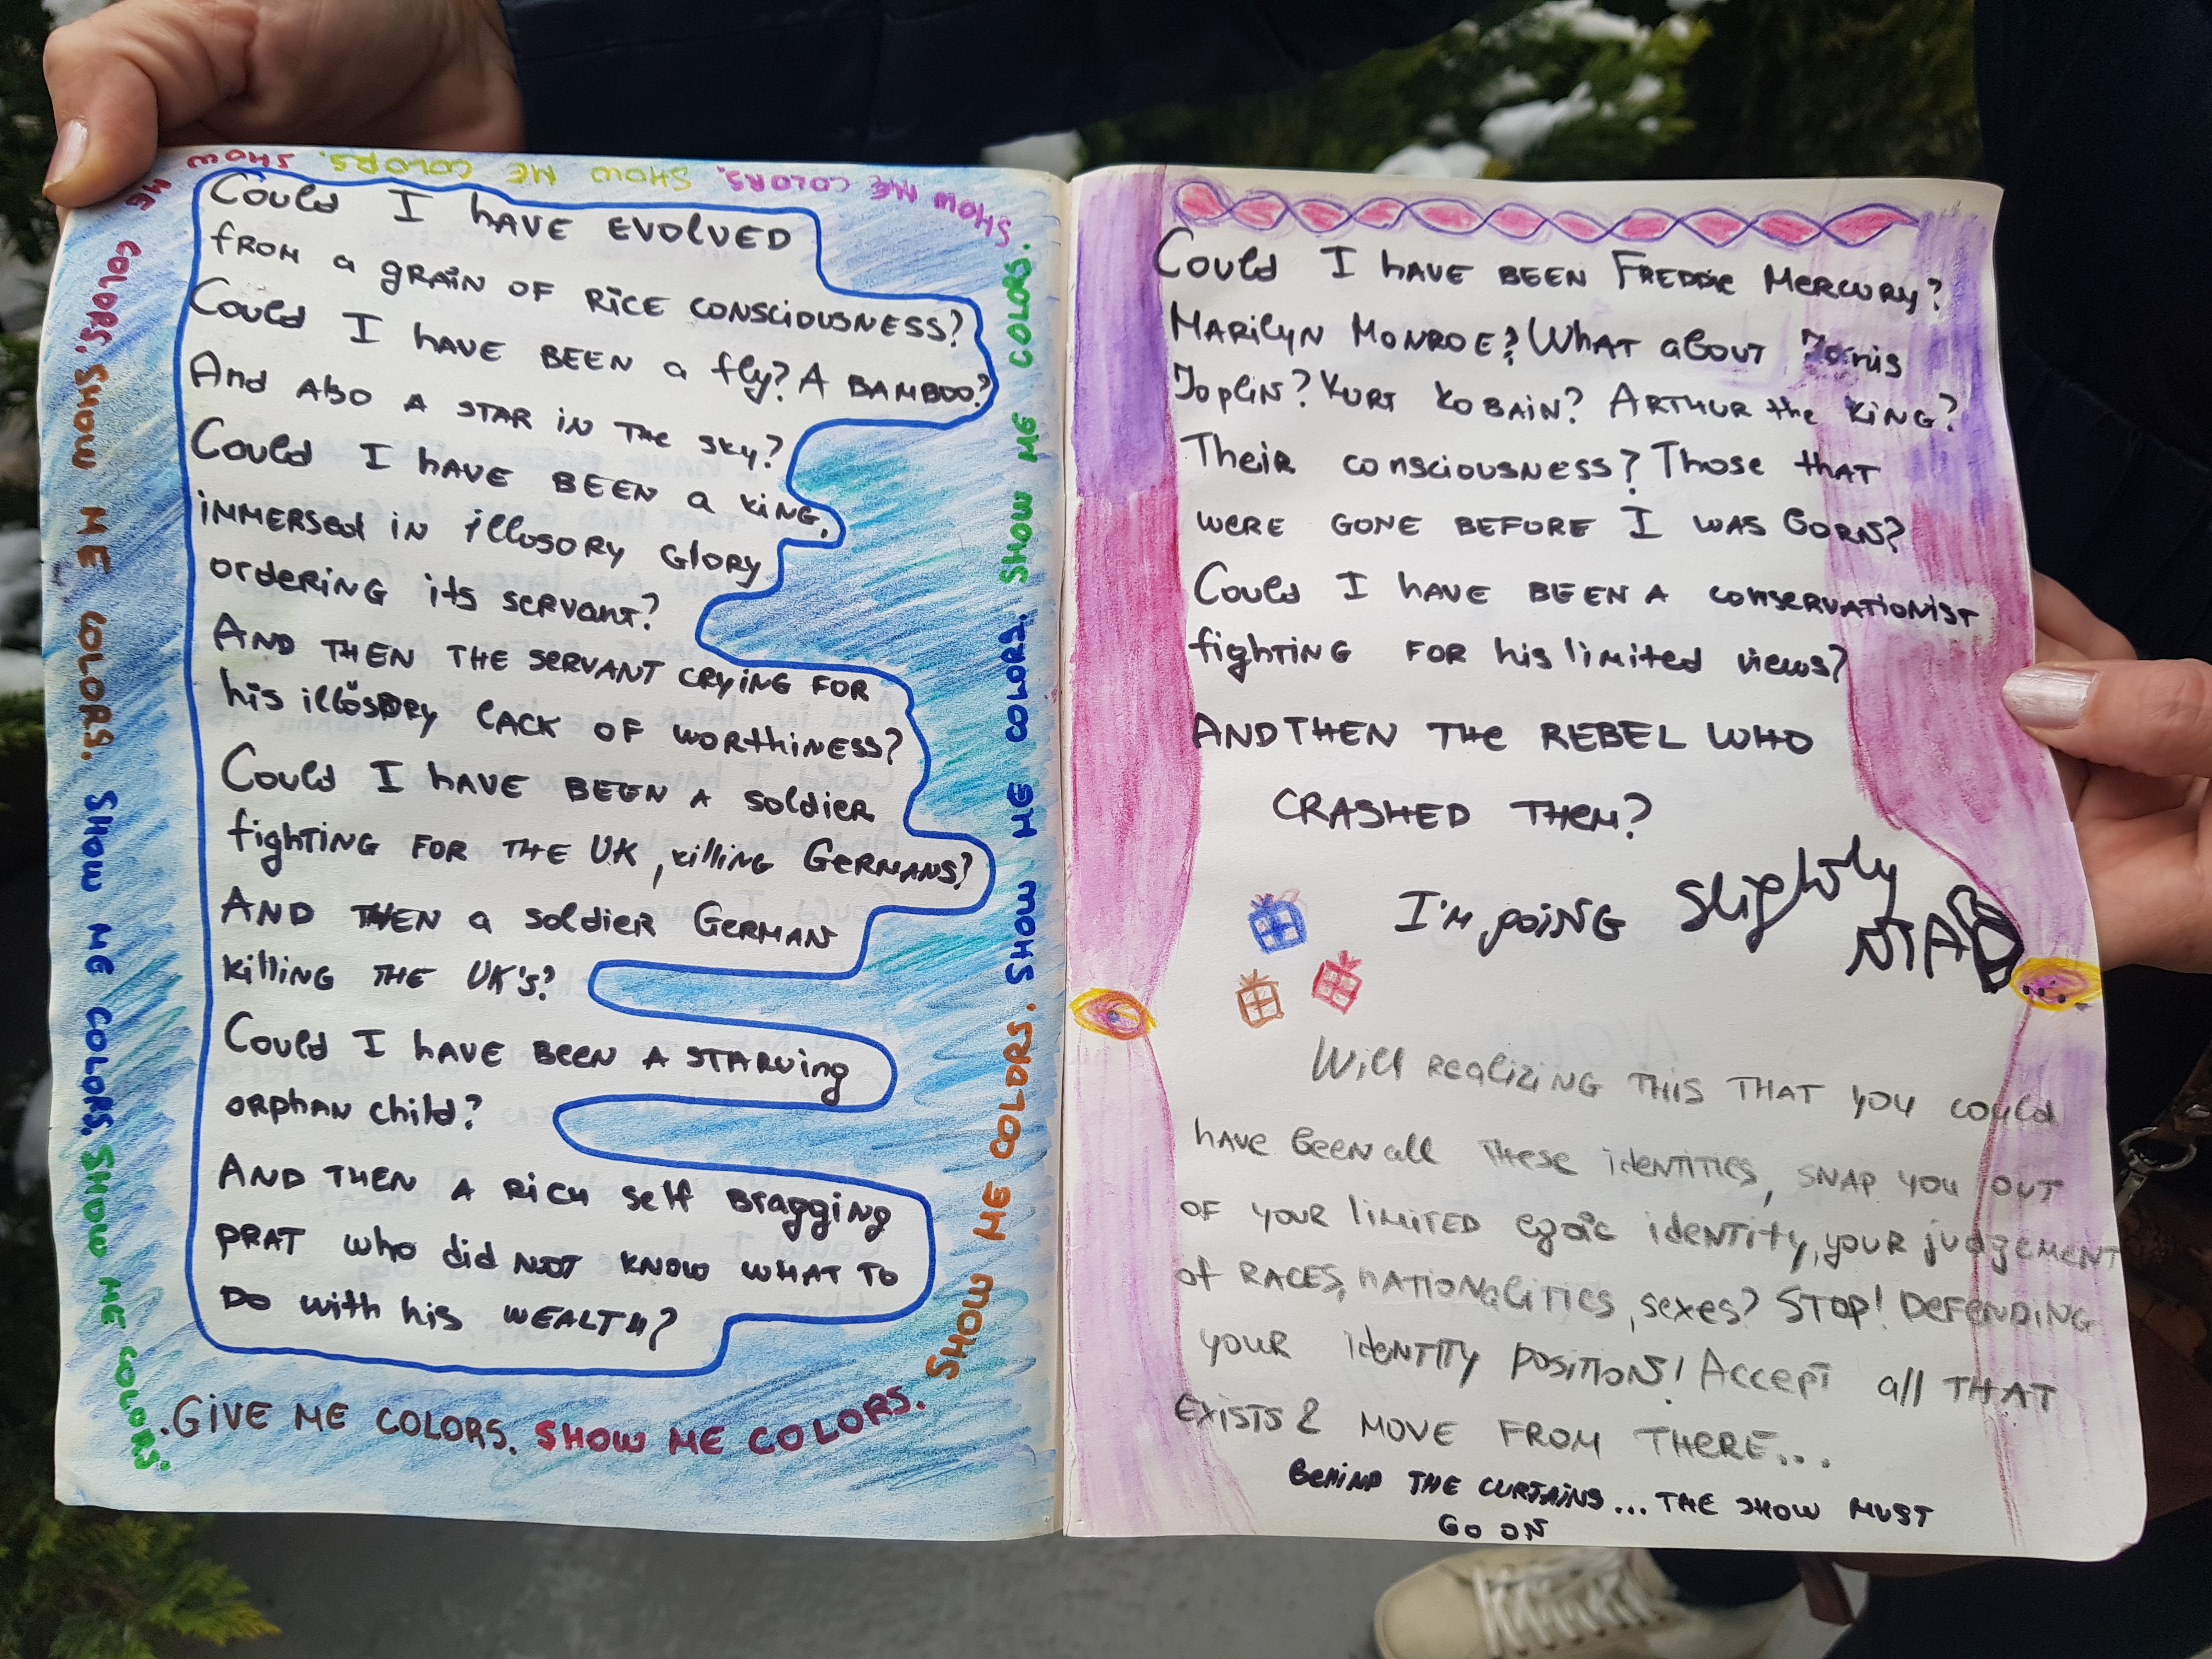 Could I HAVE EVOLVED
from a GRAIN OF RICE CONSCIOUSNESS?
Could I HAVE BEEN a fly? A BAMBOO?
And also A STAR IN THE sky?
Could I HAVE BEEN a KING,
IMMERSEd IN illusory Glory
ORDERING its servant?
AND THEN THE SERVANT CRYING FOR
his illusory lACK OF WORthiNESS?
Could I HAVE BEEN A soldier
fighTING FOR THE UK, killING GERMANS?
AND THEN a soldier GERMAN
killing THE UK's?
Could I HAVE BEEN A STARVING
ORPHAN child?
AND THEN A RICH self BRAGGING
PRAT who did NOT KNOW WHAT TO
DO with his WEALTH?
.GIVE ME COLORS. SHOW ME COLORS.
SHOW ME COLORS. SHOW ME COLORS. SHOW ME COLORS.
SHOW ME COLORS. SHOW ME COLORS. SHOW
ME COLORS. SHOW ME COLORS. SHOW ME COLORS. SHOW ME COLORS.
Could I HAVE BEEN FREDDIE MERCURY?
MARILYN MONROE? WHAT aBOUT Janis
Joplin? KURT KOBAIN? ARTHUR the KING?
Their consciousness? Those thAT
were GONE BEFORE I WAS BORN?
Could I HAVE BEEN A conservationist
fighTING FOR his limited views?
AND THEN THE REBEL WHO
CRASHED THEM?
I'M GOING slightly
MAD
Will realizing THIS THAT you could
HAVE been all THESE identities, SNAP YOU OUT
OF YOUR limited egoic identity, your judgement
of RACES, nationalities, sexes? STOP! DEFENDING
YOUR IDENTITY POSITIONS! Accept all THAT
EXISTS & MOVE FROM THERE...
BEHIND THE CURTAINS... THE SHOW MUST
GO ON